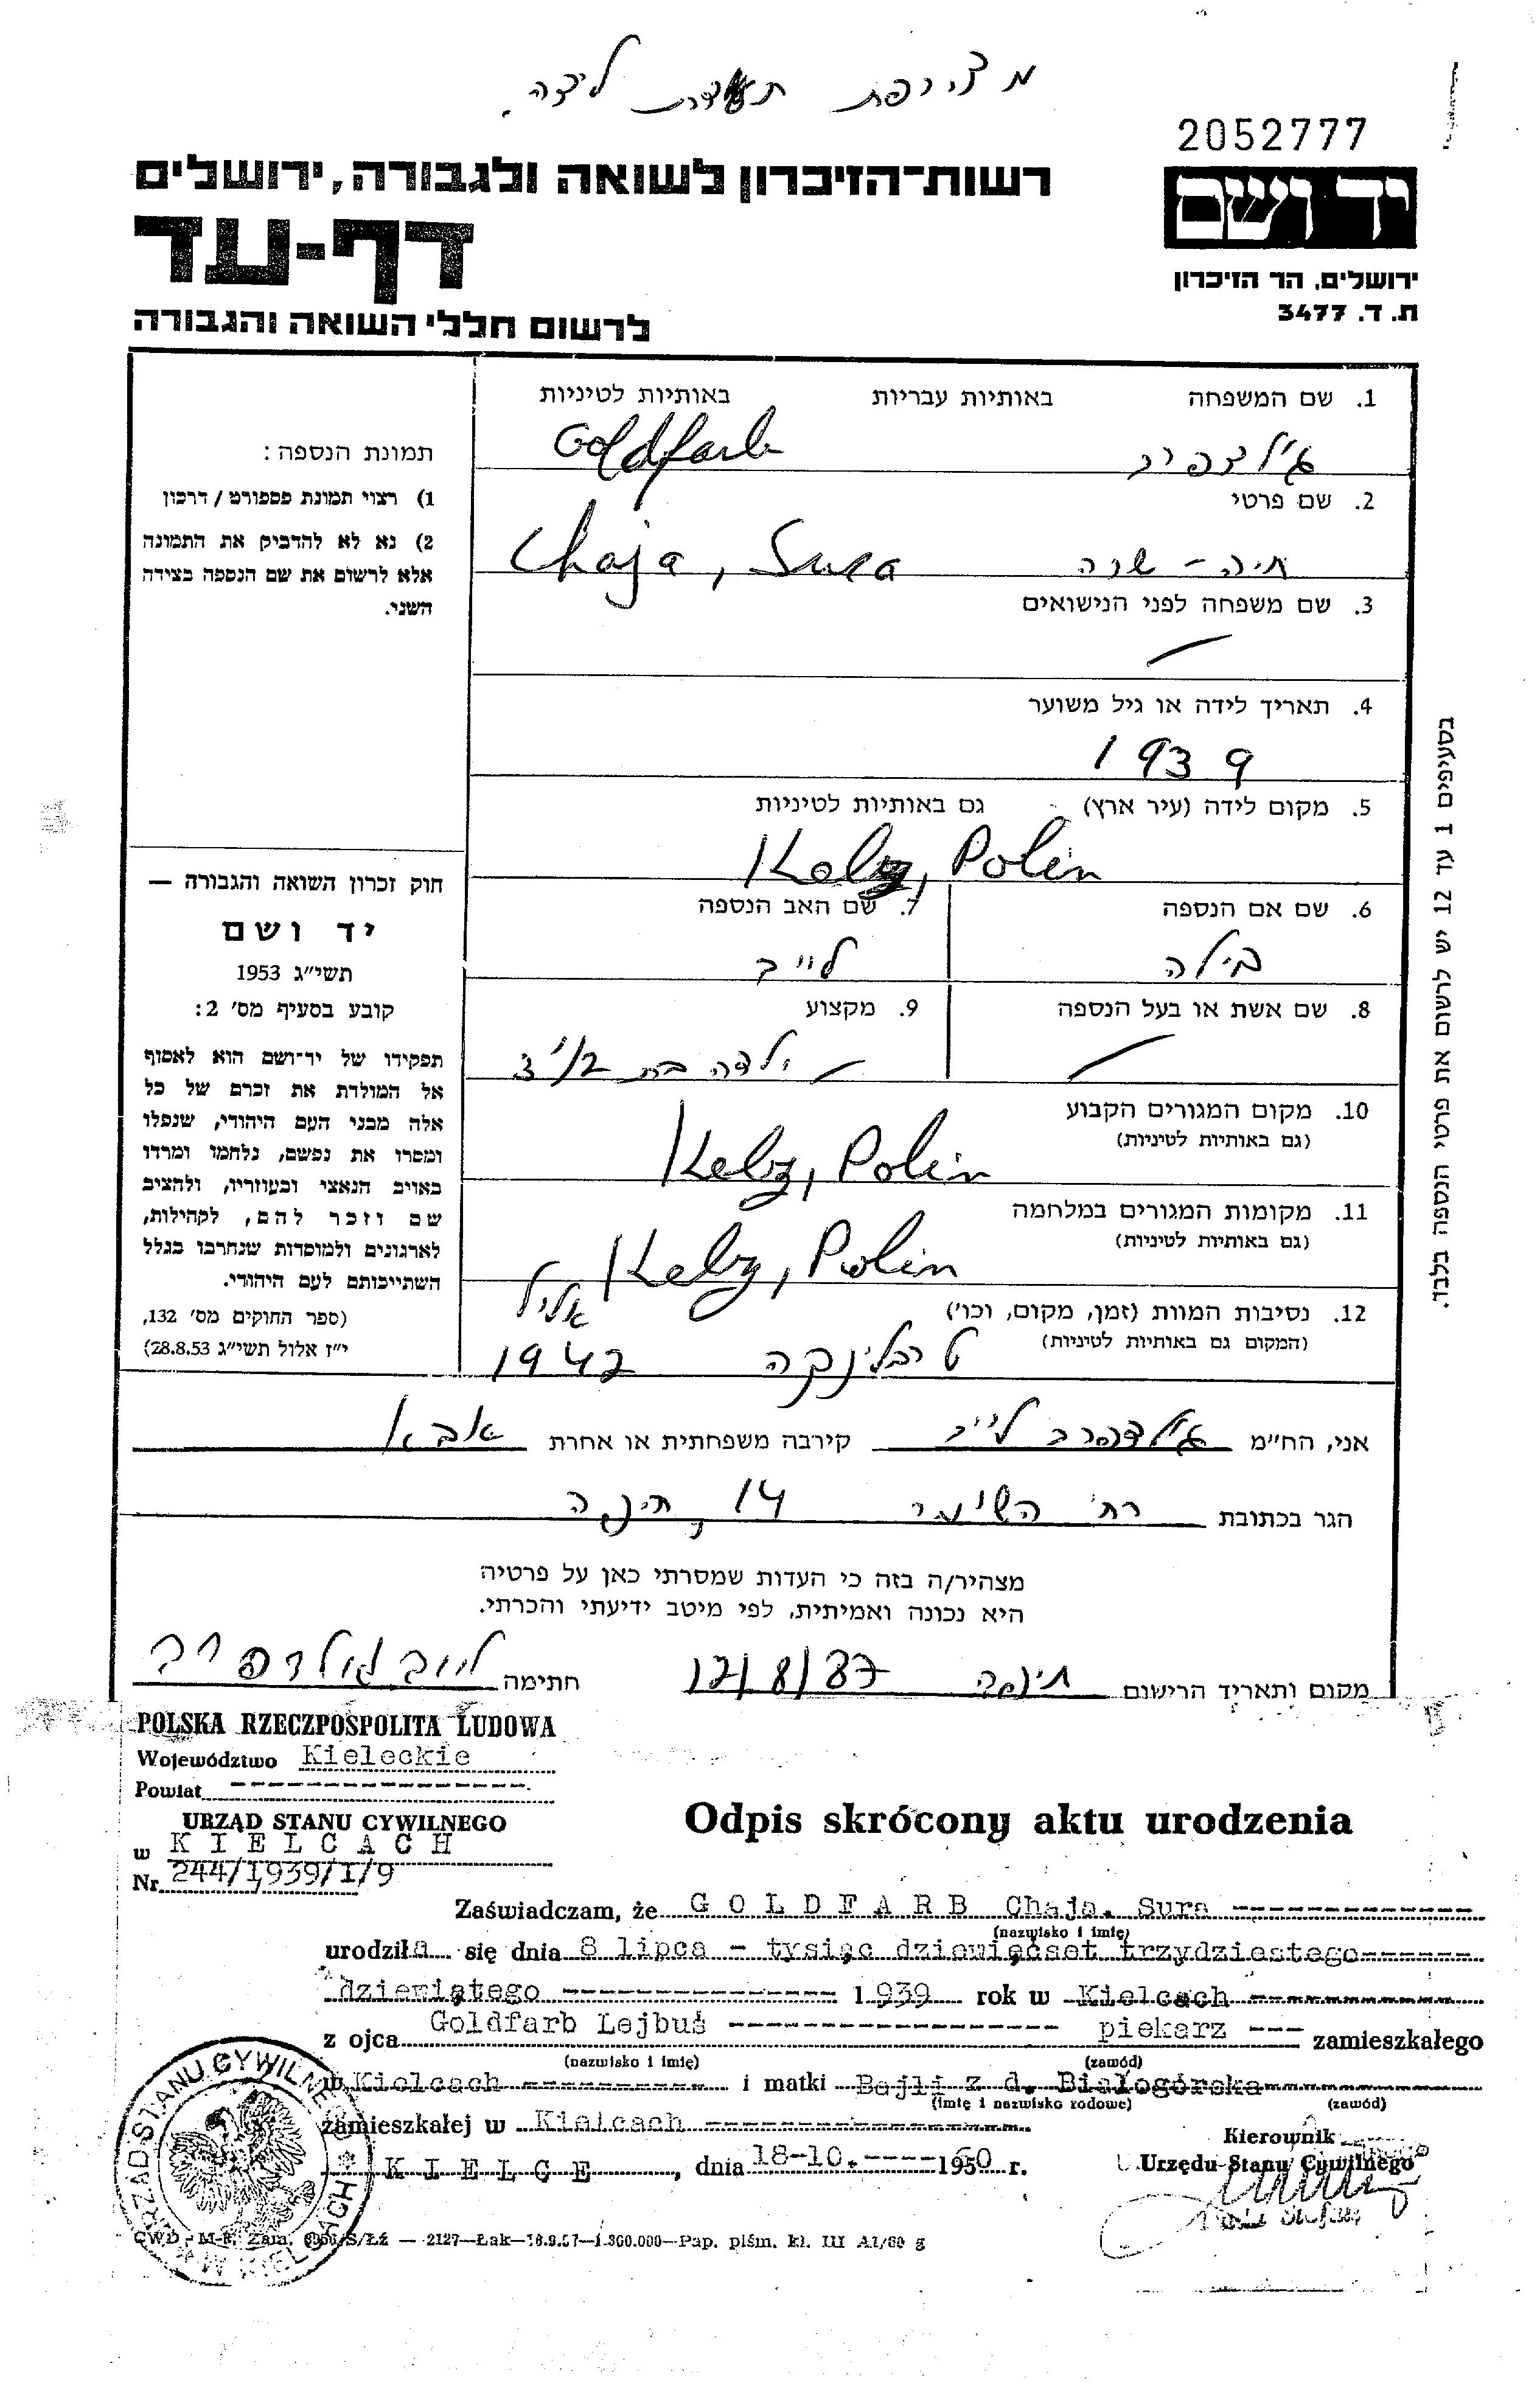 מצורפת תעודת לידה.
2052777
רשות-הזיכרון לשואה ולגבורה, ירושלים
יד ושם
דף-עד
ירושלים, הר הזיכרון
ת. ד. 3477
לרשום חללי השואה והגבורה
1. שם המשפחה באותיות עבריות באותיות לטיניות
גולדפרב Goldfarb
2. שם פרטי
חיה - שרה Chaja, Sura
3. שם משפחה לפני הנישואים
4. תאריך לידה או גיל משוער
1939
5. מקום לידה (עיר ארץ) גם באותיות לטיניות
Kelz, Polin
6. שם אם הנספה 7. שם האב הנספה
בילה לייב
8. שם אשת או בעל הנספה 9. מקצוע
ילדה בת
10. מקום המגורים הקבוע
(גם באותיות לטיניות)
Kelz, Polin
11. מקומות המגורים במלחמה
(גם באותיות לטיניות)
Kelz, Polin
12. נסיבות המוות (זמן, מקום, וכו')
(המקום גם באותיות לטיניות)
טרבלינקה 1942
תמונת הנספה:
1) רצוי תמונת פספורט / דרכון
2) נא לא להדביק את התמונה
אלא לרשום את שם הנספה בצידה
השני.
חוק זכרון השואה והגבורה —
יד ושם
תשי"ג 1953
קובע בסעיף מס' 2:
תפקידו של יד-ושם הוא לאסוף
אל המולדת את זכרם של כל
אלה מבני העם היהודי, שנפלו
ומסרו את נפשם, נלחמו ומרדו
באויב הנאצי ובעוזריו, ולהציב
שם וזכר להם, לקהילות,
לארגונים ולמוסדות שנחרבו בגלל
השתייכותם לעם היהודי.
(ספר החוקים מס' 132,
י"ז אלול תשי"ג 28.8.53)
בסעיפים 1 עד 12 יש לרשום את פרטי הנספה בלבד.
אני, הח"מ גולדפרב לייב קירבה משפחתית או אחרת אבא
הגר בכתובת רח' השומר 14, חיפה
מצהיר/ה בזה כי העדות שמסרתי כאן על פרטיה
היא נכונה ואמיתית, לפי מיטב ידיעתי והכרתי.
מקום ותאריך הרישום חיפה 12/8/87 חתימה לייב גולדפרב
POLSKA RZECZPOSPOLITA LUDOWA
Województwo Kieleckie
Powiat
URZĄD STANU CYWILNEGO
w KIELCACH
Nr 244/1939/I/9
Odpis skrócony aktu urodzenia
Zaświadczam, że GOLDFARB Chaja. Sura
(nazwisko i imię)
urodziła się dnia 8 lipca - tysiąc dziewięćset trzydziestego
dziewiątego 1939 rok w Kielcach
z ojca Goldfarb Lejbuś piekarz zamieszkałego
(nazwisko i imię) (zawód)
w Kielcach i matki Bajli z d. Białogórska
(imię i nazwisko rodowe) (zawód)
zamieszkałej w Kielcach
KIELCE, dnia 18-10. 1960 r.
Kierownik
Urzędu Stanu Cywilnego
URZĄD STANU CYWILNEGO W KIELCACH